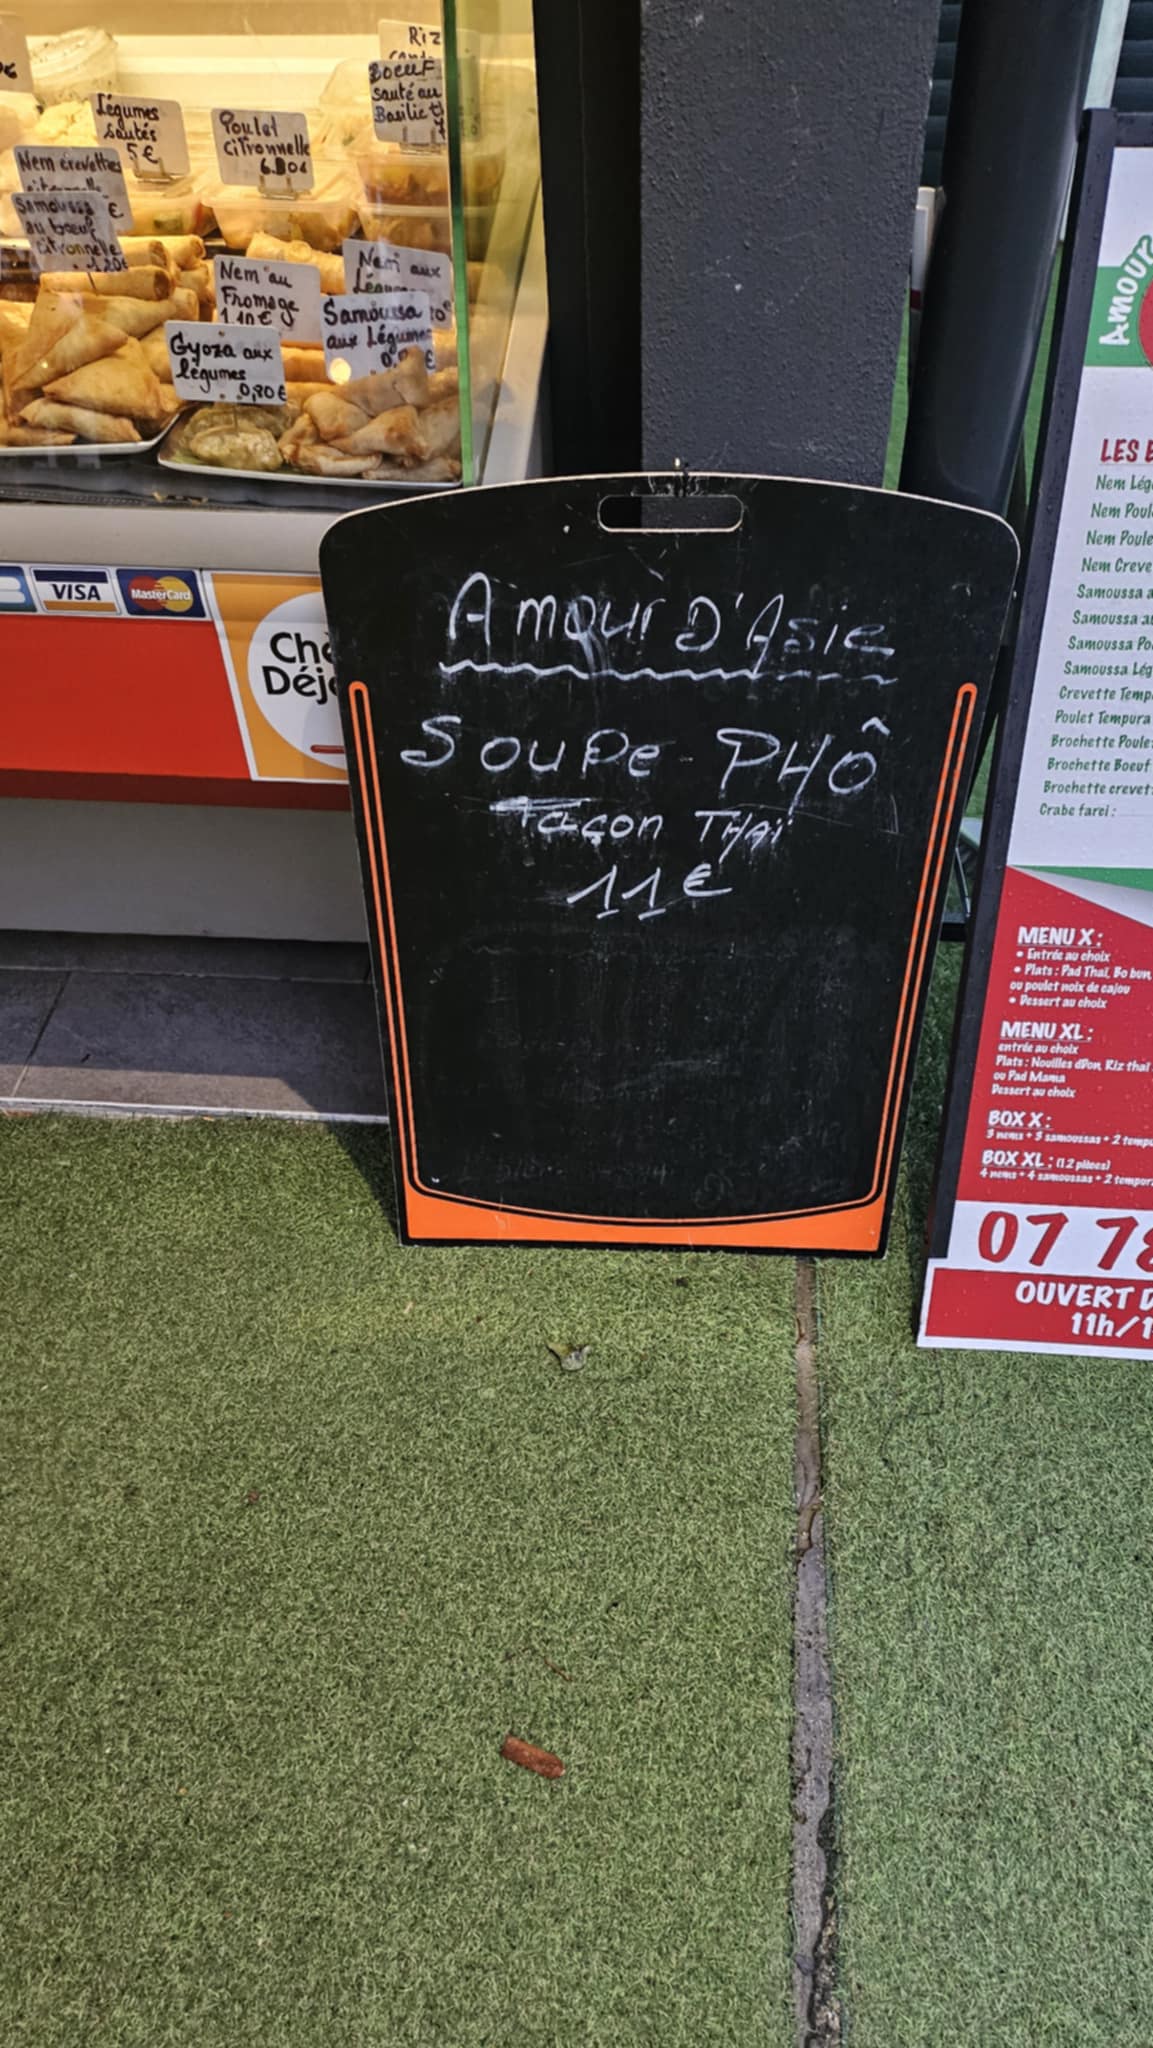 Riz
Boeuf
sauté au
Basilic
Légumes
sautés
5€
Poulet
citronnelle
Nem crevettes
Samoussa
au boeuf
citronnelle
1,20€
Nem au
Fromage
1.10€
Nem aux
Samoussa
aux Légumes
Gyoza aux
légumes
0,80€
VISA
MasterCard
Amour D'Asie
Soupe PHÔ
Façon THAÏ
11€
Amour
LES
Nem
Nem
Nem
Nem
Samoussa
Samoussa
Samoussa
Samoussa
Crevette
Poulet Tempura
Brochette
Brochette Boeuf
Brochette
Crabe farci :
MENU X :
• Entrée au choix
• Plats : Pad Thaï, Bo bun,
ou poulet noix de cajou
• Dessert au choix
MENU XL :
entrée au choix
Plats : Nouilles dDon, Riz thaï
ou Pad Mama
Dessert au choix
BOX X :
3 nems + 3 samoussas + 2
BOX XL : (12 pièces)
4 nems + 4 samoussas + 2
07
OUVERT
11h/